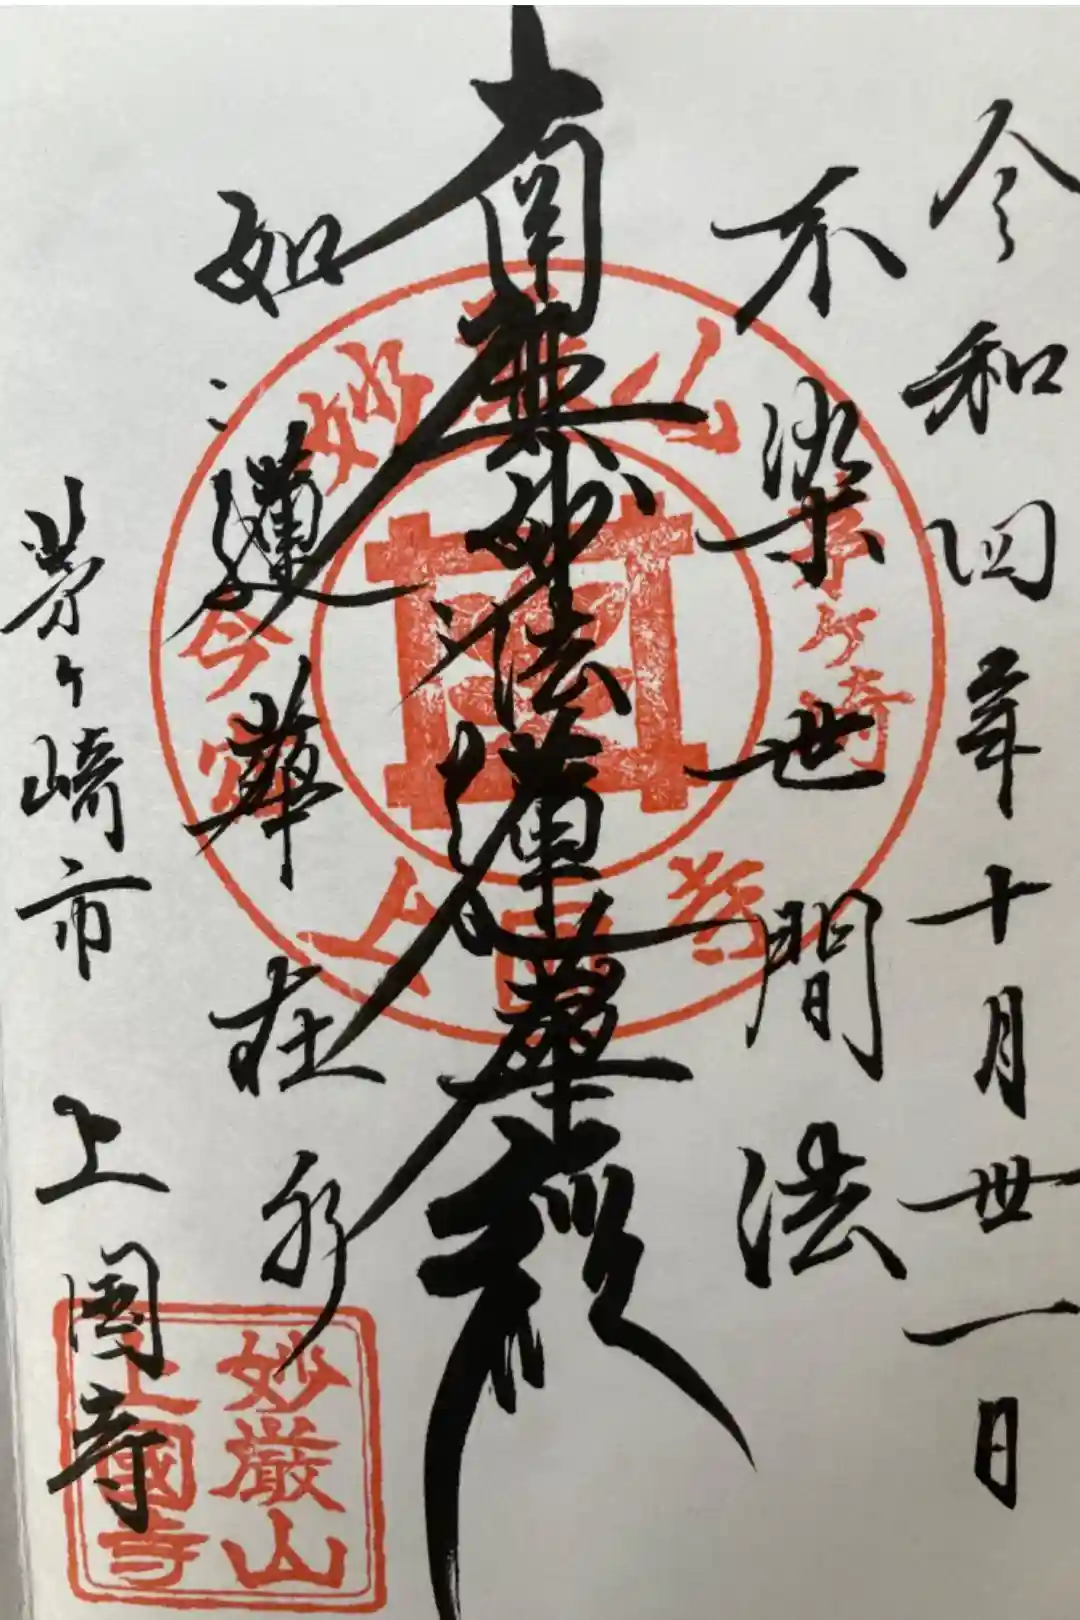 令和四年十月丗一日
不染世間法
南無妙法蓮華経
如蓮華在水
茅ヶ崎市 上国寺
妙厳山
茅ヶ崎
今宿
上国寺
妙厳山
上國寺